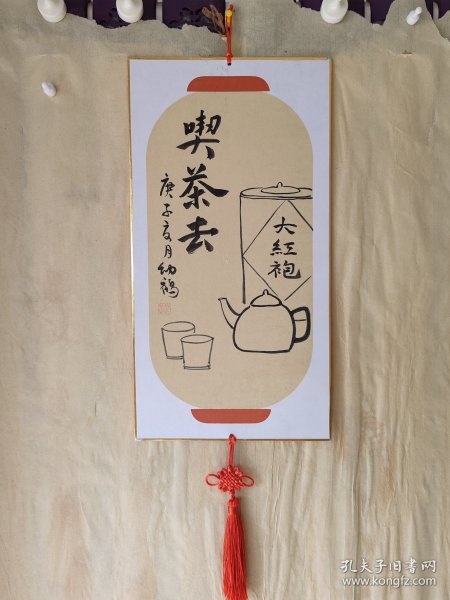 喫茶去
庚子夏月幼鶴
大紅袍
孔夫子旧书网
www.kongfz.com